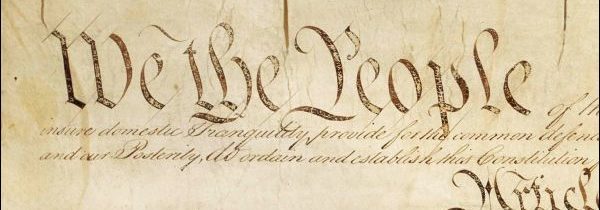 We the People of th
insure domestic Tranquility, provide for the common defenc
and our Posterity, do ordain and establish this Constitution
Article